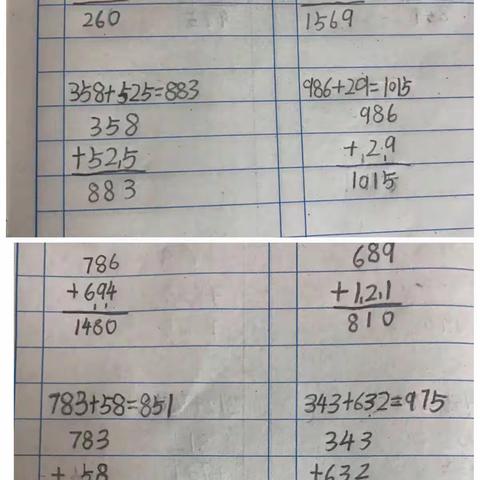 260
1569
358+525=883
358
+525
883
986+29=1015
986
+29
1015
786
+694
1480
689
+121
810
783+58=851
783
+58
343+632=975
343
+632